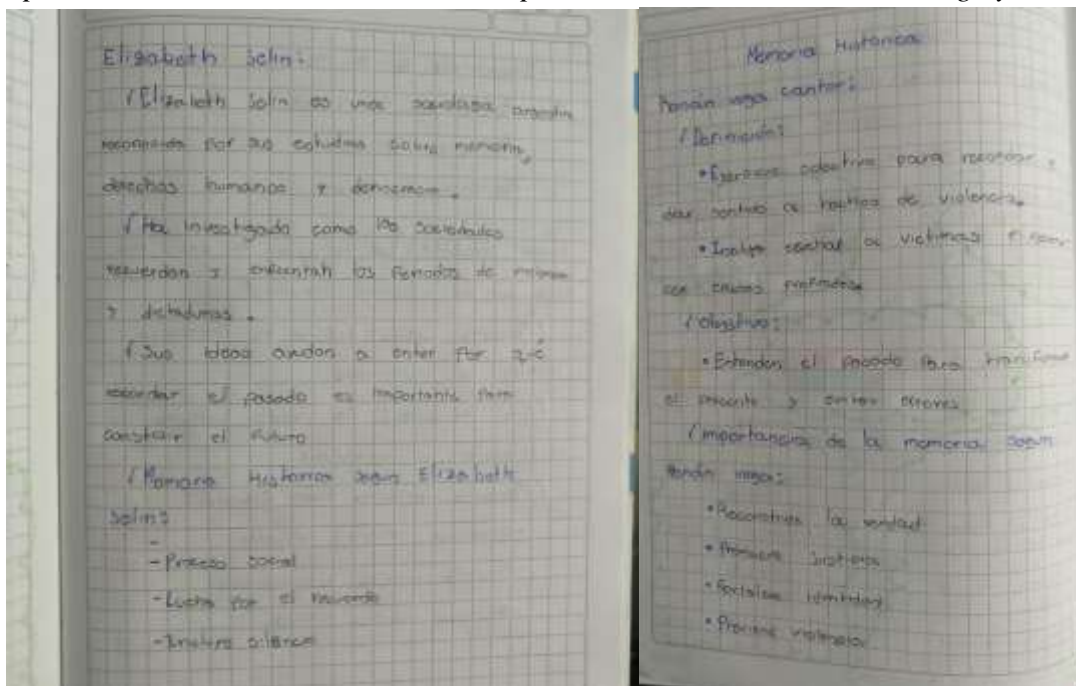 Elizabeth Jelin:
√ Elizabeth Jelin es una socióloga argentina
reconocida por sus estudios sobre memoria,
derechos humanos y
√ Ha investigado como las sociedades
recuerdan y enfrentan los Periodos de
y dictaduras.
√ Sus ideas ayudan a enter Por qué
recordar el pasado es importante para
construir el futuro
√ Memoria Historica según Elizabeth
Jelin:
- Proceso social
- Lucha por el recuerdo
- Involucra silencio
Memoria Historica
Renán vega cantor:
√ Definición:
• Ejercicio colectivo para recordar y
dar sentido a hechos de violencia.
• Incluye a victimas
con profundas
√ Objetivo:
• Entender el pasado Para transformar
el presente y evitar errores
√ importancia de la memoria según
Renán vega:
• Reconstruye la verdad
• Promueve Justicia
• Facilita
• Previene violencia